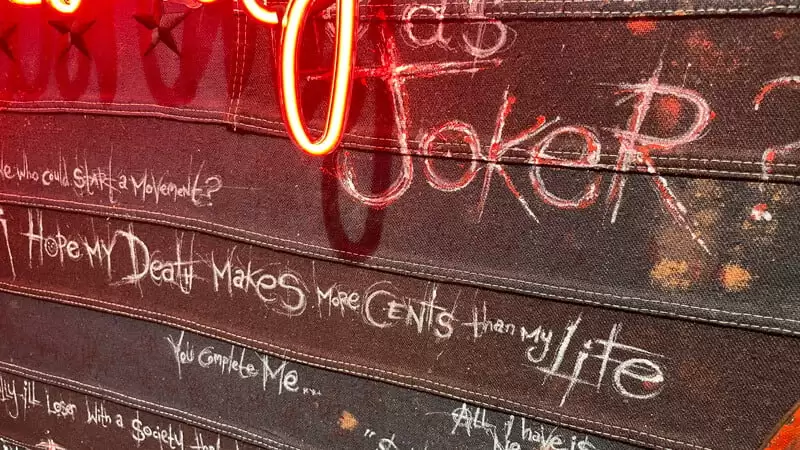 as
JokeR ?
who could START a MOVEMENT?
i HOPE MY Death MAKES MORE CENTS than my Life
You Complete Me...
ill Loser With a Society that
All i have is